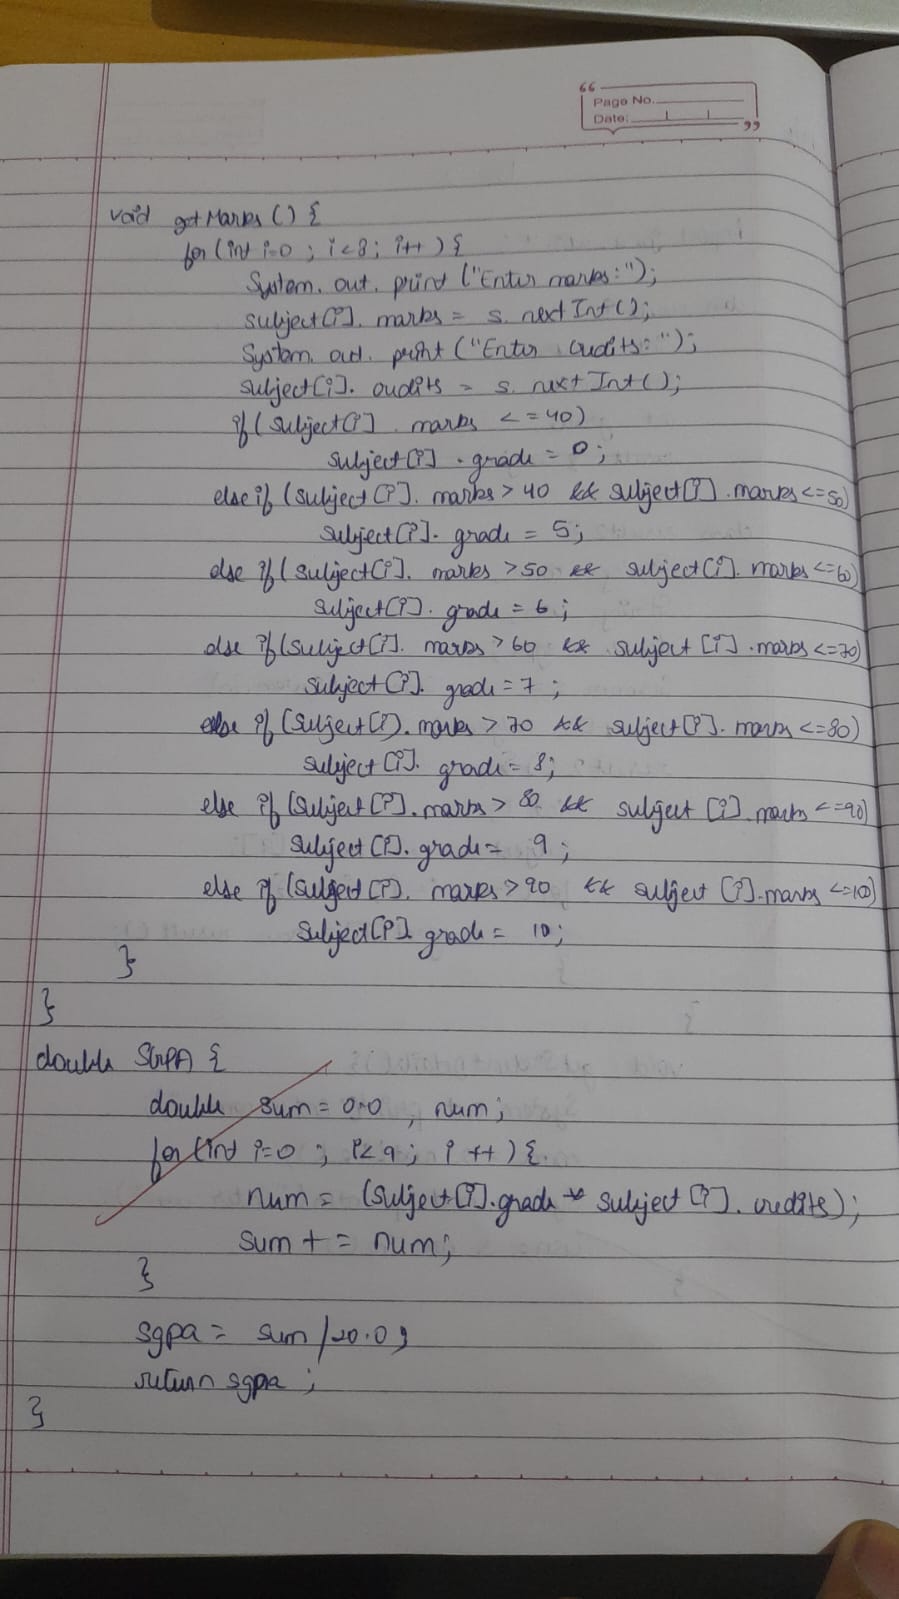 Page No.
Date:
void getMarks () {
for (int i=0 ; i<8; i++ ) {
System. out. print ("Enter marks:");
subject[i]. marks = s. nextInt();
System. out. print ("Enter credits:");
subject[i]. credits = s. next Int();
if ( subject[i] . marks <=40)
subject[i] . grade = 0;
else if (subject [i]. marks > 40 && subject[i] . marks <=50)
subject[i]. grade = 5;
else if ( subject[i]. marks >50 && subject[i]. marks <=60)
subject[i]. grade = 6;
else if (subject[i]. marks >60 && subject [i] . marks <=70)
subject [i]. grade = 7 ;
else if (subject[i]. marks > 70 && subject[i]. marks <=80)
subject [i]. grade = 8;
else if (subject [i]. marks > 80 && subject [i]. marks <=90)
subject [i]. grade = 9 ;
else if (subject [i]. marks >90 && subject [i]. marks <=100)
subject[i]. grade = 10;
}
}
double SGPA {
double sum = 0.0 , num;
for (int i=0 ; i<9; i ++ ) {
num = (subject[i].grade * subject [i]. credits);
sum + = num;
}
sgpa = sum /20.0;
return sgpa ;
}